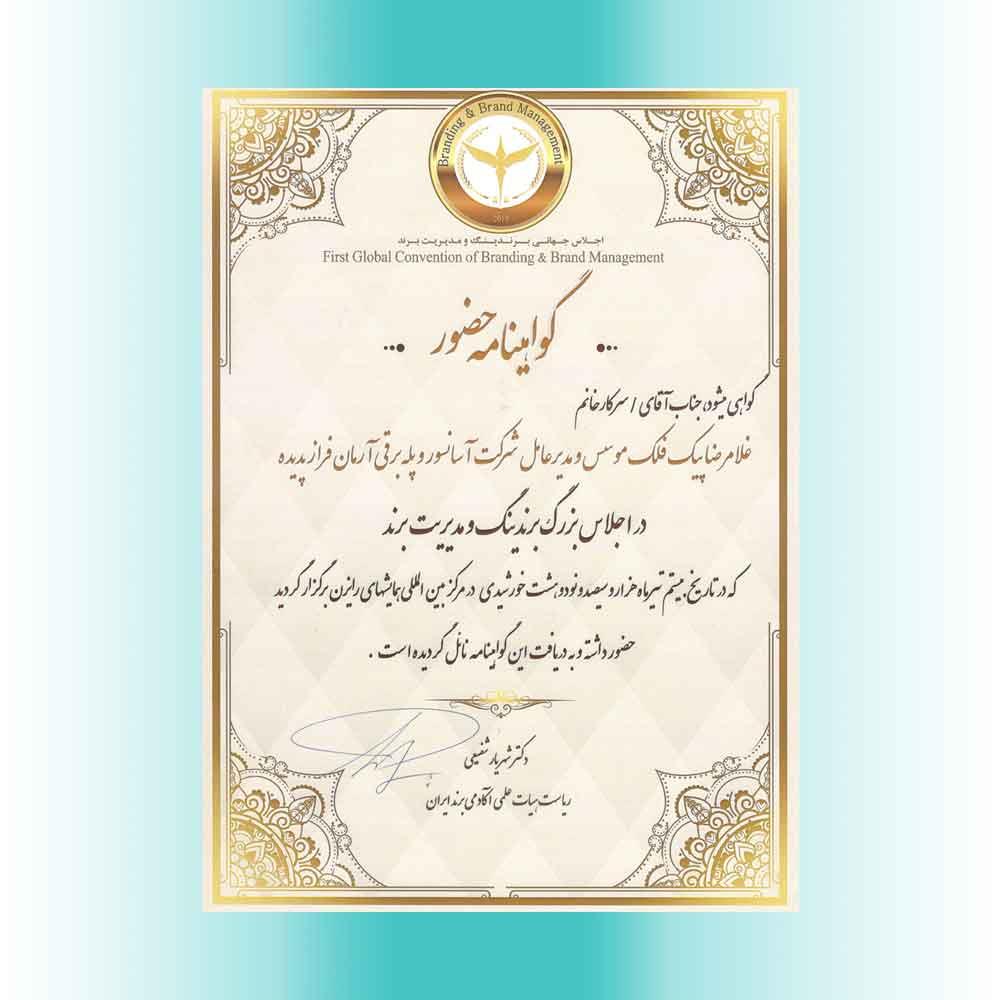 Branding & Brand Management
2019
اجلاس جهانی برندینگ و مدیریت برند
First Global Convention of Branding & Brand Management
گواهینامه حضور
گواهی میشود، جناب آقای / سرکار خانم
غلامرضا پیک فلک موسس و مدیرعامل شرکت آسانسور و پله برقی آرمان فراز پدیده
در اجلاس بزرگ برندینگ و مدیریت برند
که در تاریخ بیستم تیرماه هزار و سیصد و نود و هشت خورشیدی در مرکز بین المللی همایشهای رایزن برگزار گردید
حضور داشته و به دریافت این گواهینامه نائل گردیده است .
دکتر شهریار شفیعی
ریاست هیات علمی آکادمی برند ایران